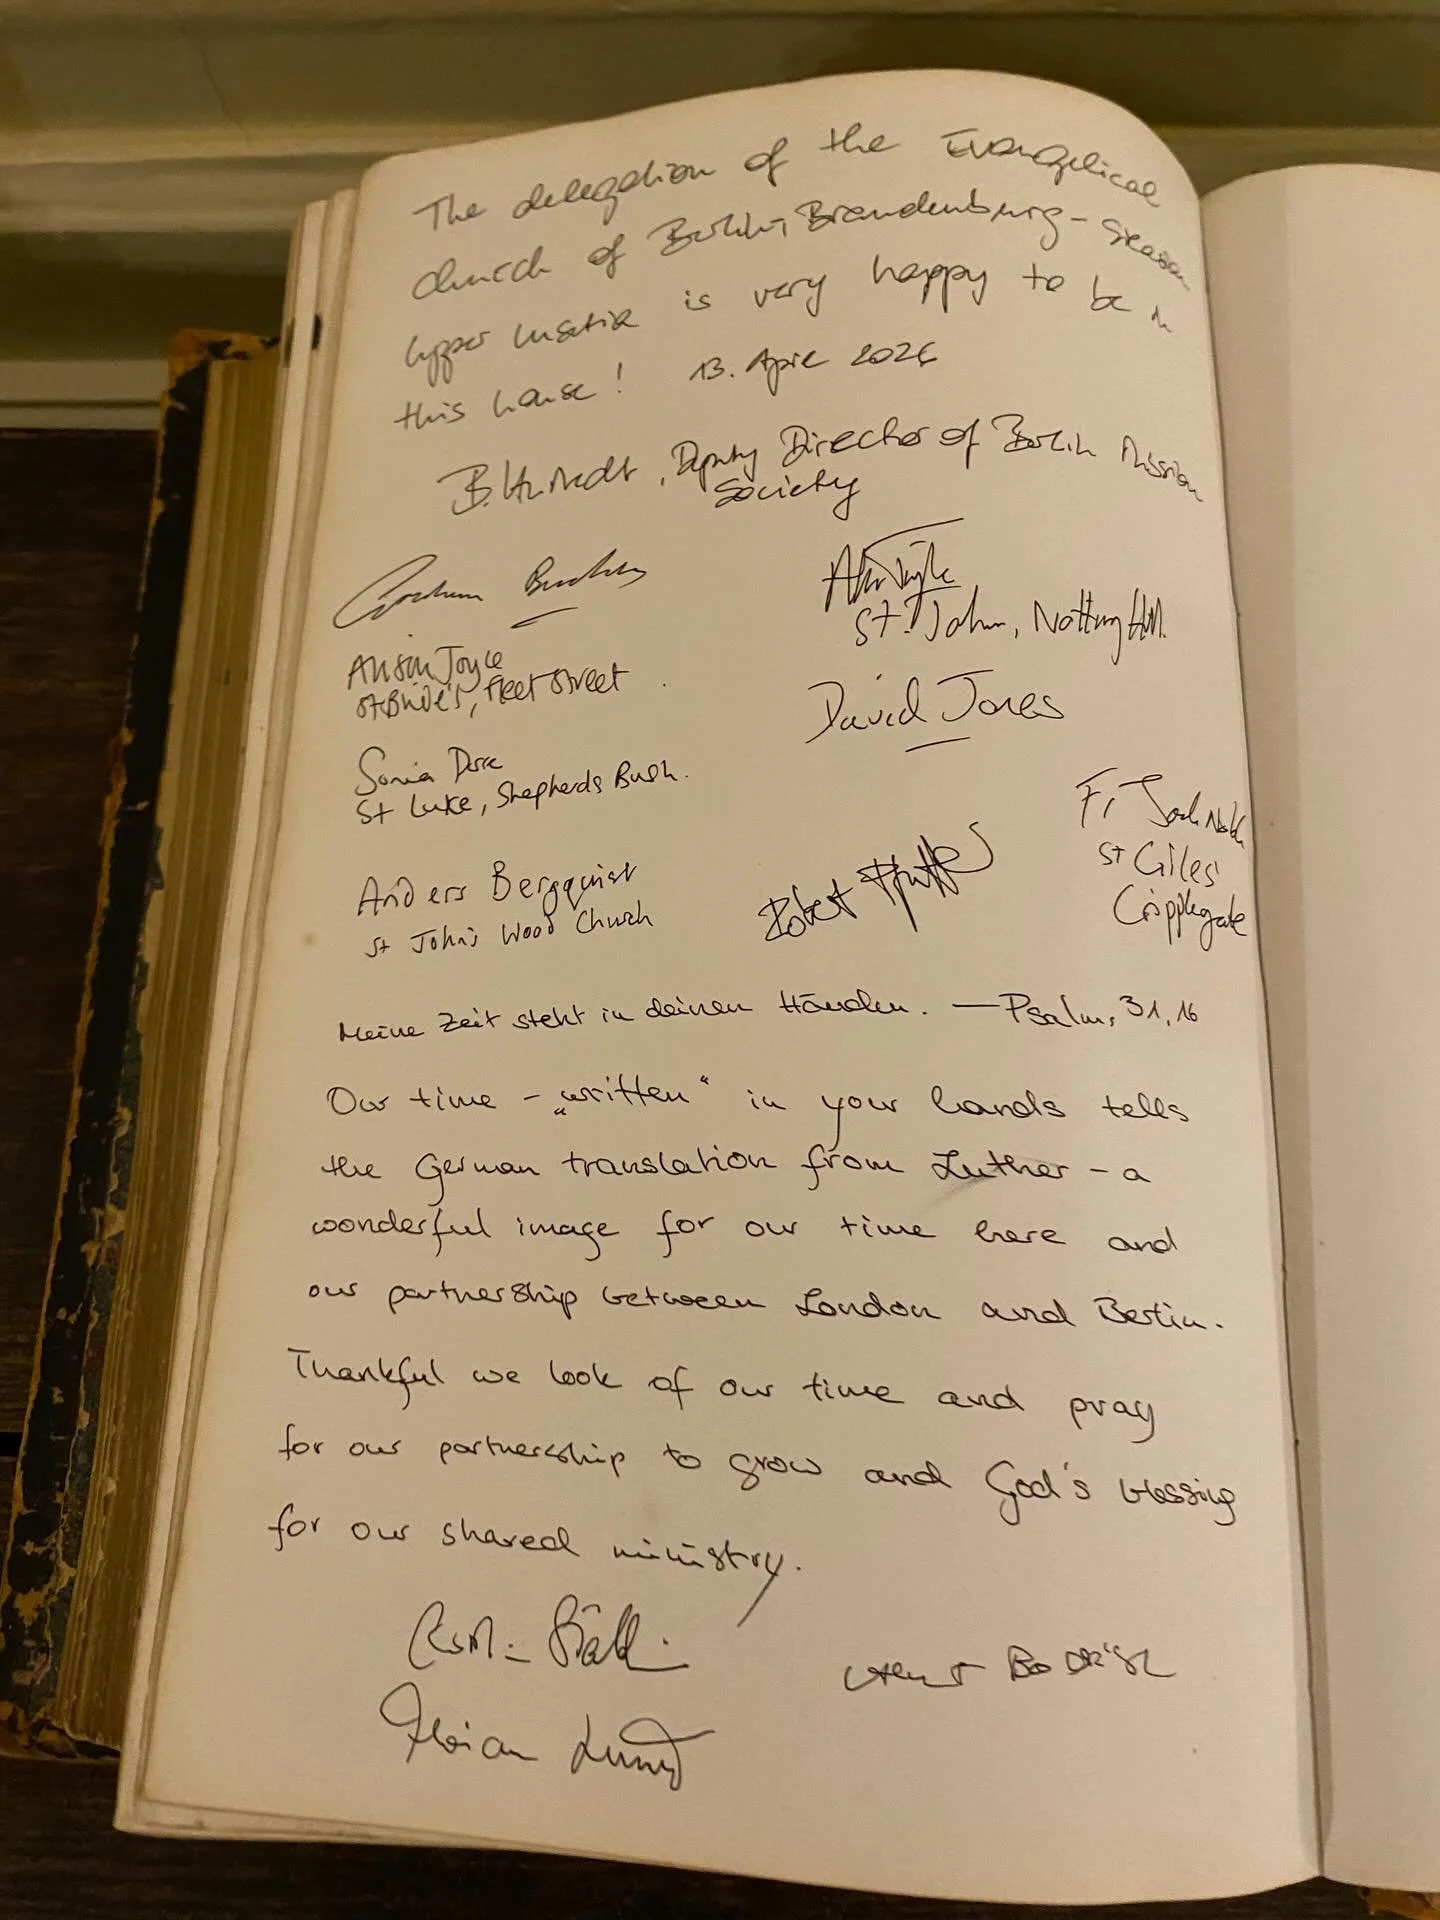 The delegation of the Evangelical
church of Berlin, Brandenburg-Silesian
upper Lusatia is very happy to be in
this house! 13. April 2026
Deputy Director of Berlin Mission
Society
Graham Buckley
St. John, Notting Hill.
Alison Joyce
St Bride's, Fleet Street
David Jones
Sonia
St Luke, Shepherds Bush.
Fr Jack
St Giles'
Cripplegate
Anders Bergquist
St John's Wood Church
Robert
Meine Zeit steht in deinen Händen. — Psalm, 31, 16
Our time - „written“ in your hands tells
the German translation from Luther - a
wonderful image for our time here and
our partnership between London and Berlin.
Thankful we look of our time and pray
for our partnership to grow and God's blessing
for our shared ministry.
Florian